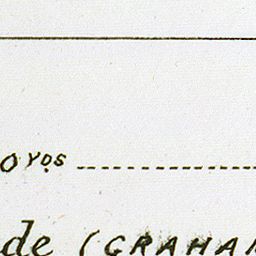 0 Yds
de (GRAHAM